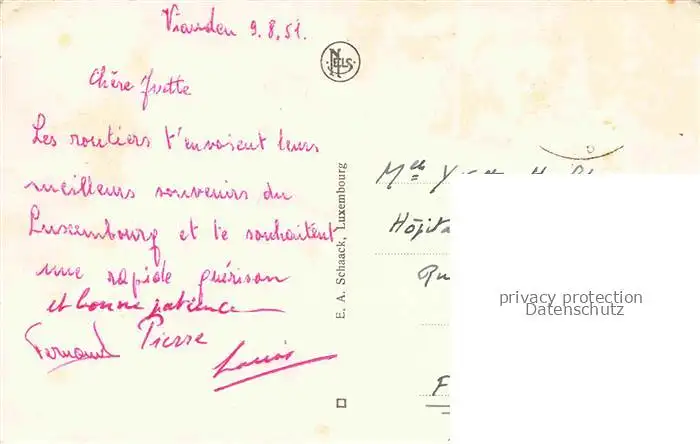 Vianden 9.8.51.
NELS
Chère Yvette
Les routiers t'envoient leurs
meilleurs souvenirs du
Luxembourg et te souhaitent
une rapide guérison
et bonne patience
Fernand Pierre
Louis
E. A. Schaack, Luxembourg
Melle
Hôpita
Qu
F
privacy protection
Datenschutz